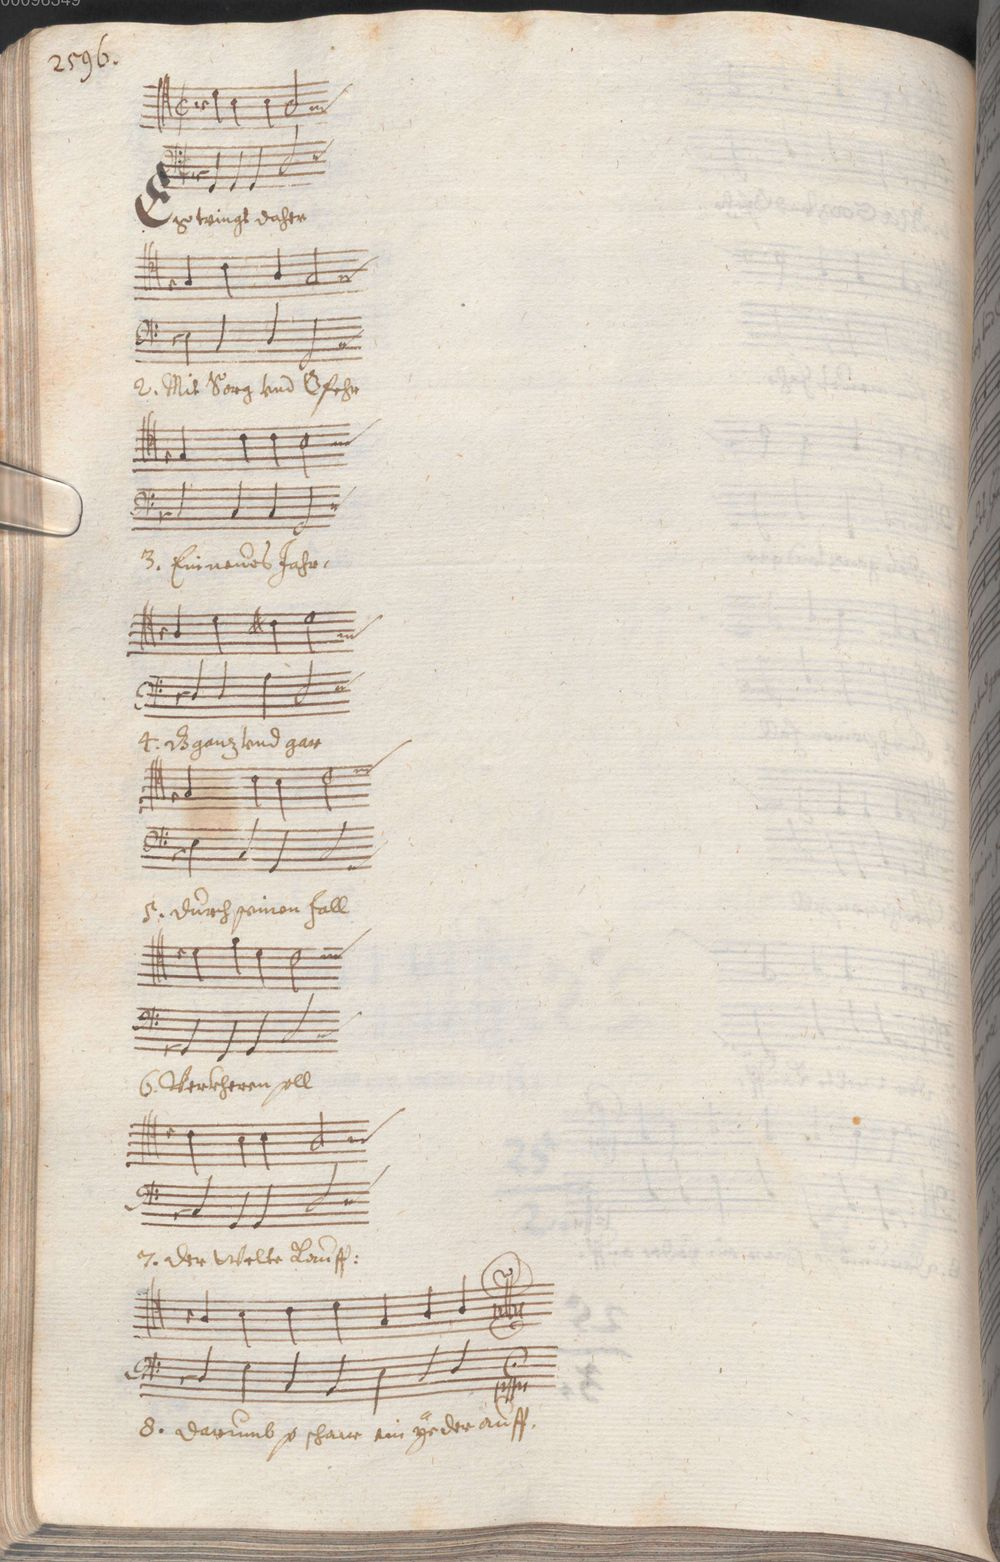 00096349
2596.
Es bringt daher
2. Mit Sorg vnd Gfehr
3. Ein neues Jahr,
4. Ganz vnd gar
5. Durch seinen Fall
6. Verkheren soll
7. Der Welte Lauff:
8. Darumb so schaw ein yeder auff.